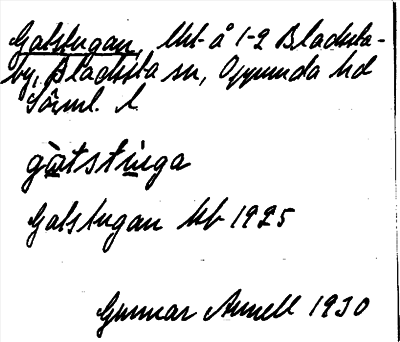 Gatstugan, lht å 1-2 Bladsta-
by, Bladsta sn, Oppunda hd
Sörml. l.
gàtstùga
Gatstugan Jb 1925
Gunnar Annell 1930